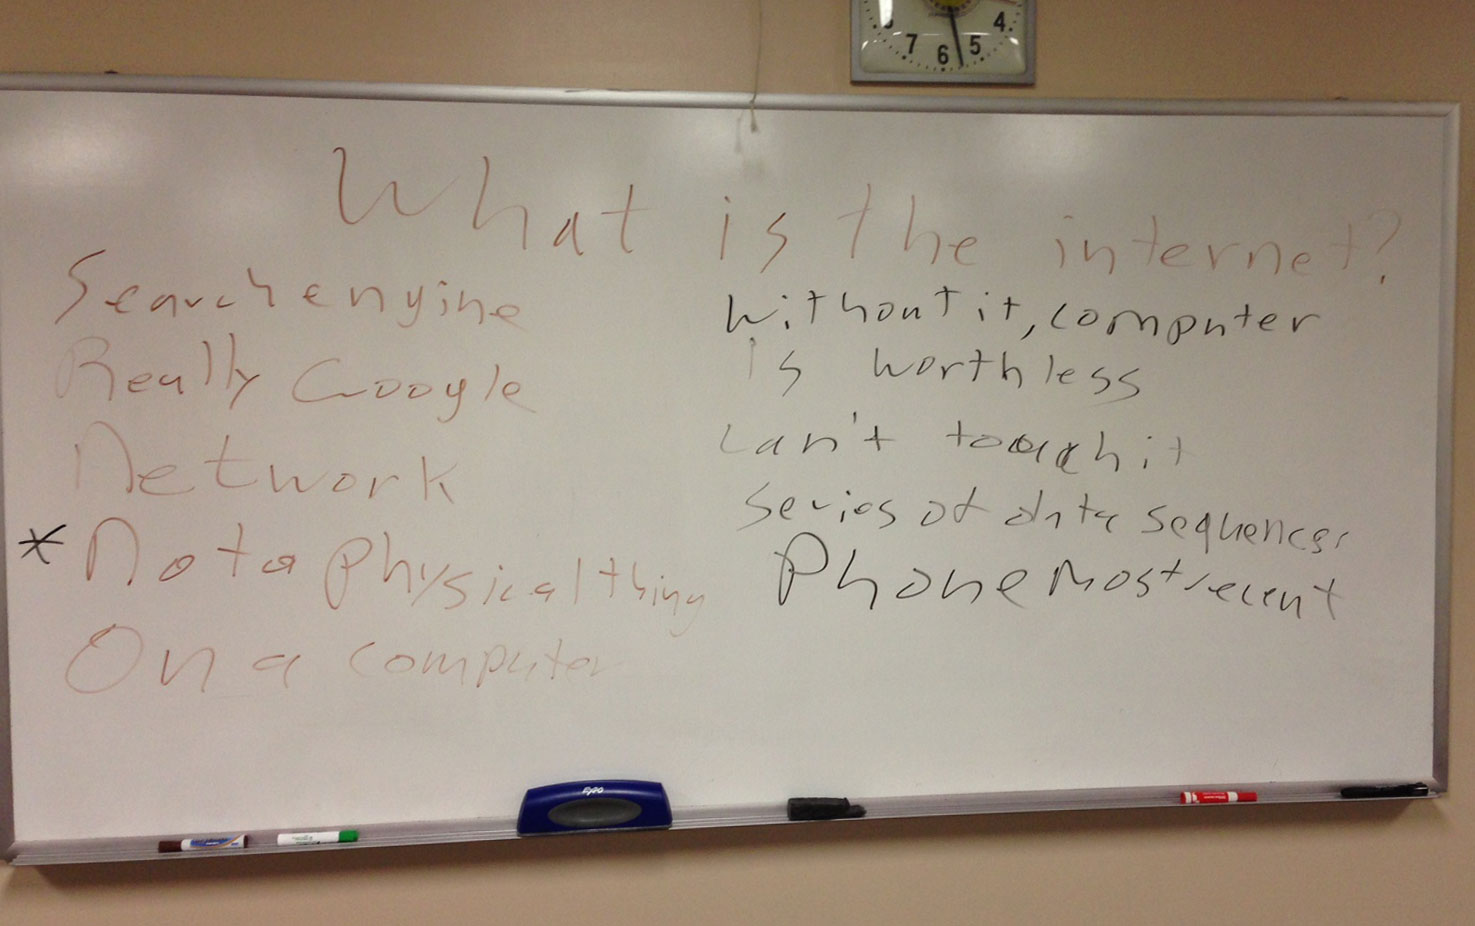 4
7
6
5
What is the internet?
Search engine
Really Google
Network
* Not a physical thing
On a computer
Without it, computer
is worthless
can't touch it
series of data sequences
Phone most recent
EXPO